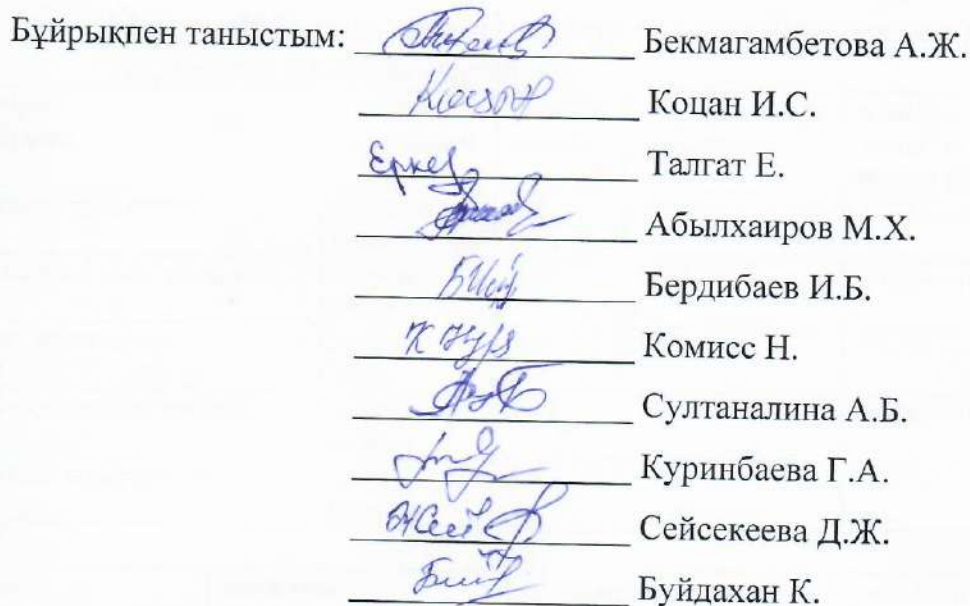 Бұйрықпен таныстым: Бекмагамбетова А.Ж.
Коцан И.С.
Ерке Талгат Е.
Абылхаиров М.Х.
Бердибаев И.Б.
Комисс Н.
Султаналина А.Б.
Куринбаева Г.А.
Сейсекеева Д.Ж.
Буйдахан К.